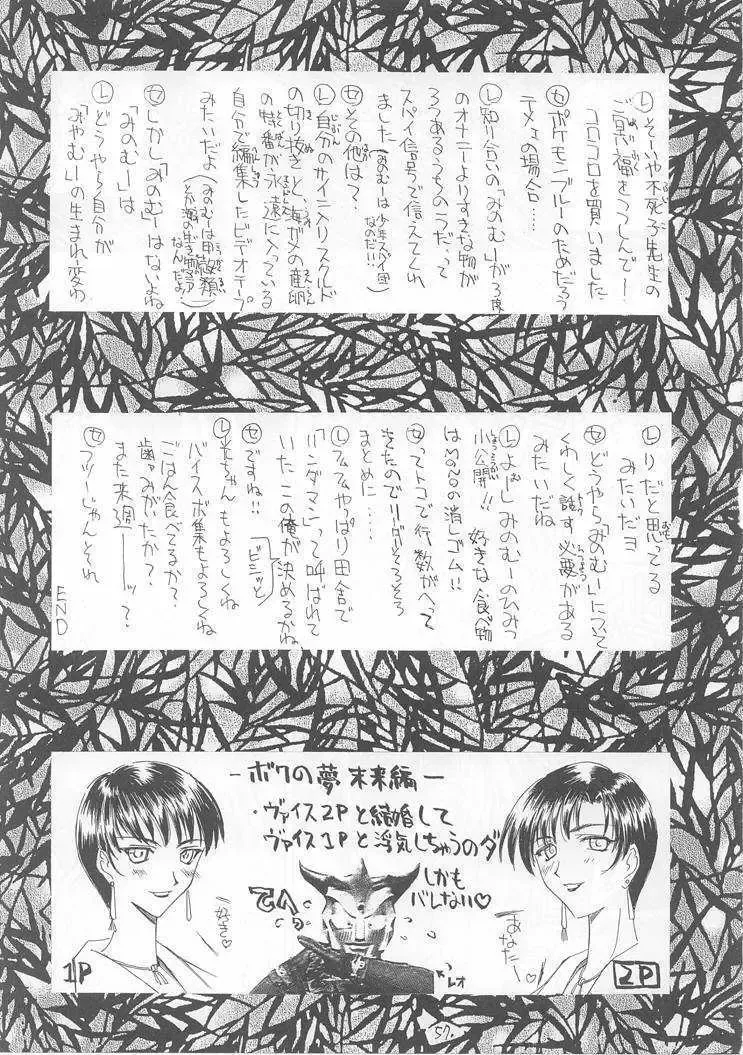 Ⓛそーいや不死子先生の
ご冥福をうつしんでー
コロコロを買いました
㊛ポケモンブルーのためだろう
テメェの場合……
Ⓛ知り合いの「みのむー」が
のオナニーよりすきな物が
ろつあるうちのうだって
スパイ信号で信えてくれ
ました(みのむーは少年スパイ団なのだ!!)
㊛その他は?
Ⓛ自分のサイン入りスクルド
の切り抜きと、海ガメの産卵
の特番がう永遠に入っている
自分で編集したビデオテープ
みたいだよ
㊛しかし「みのむー」はないよね
「みのむー」は
Ⓛどうやら自分が
「みやむー」の生まれ変わ
Ⓛりだと思ってる
みたいだヨ
㊛どうやら「みのむー」について
くわしく話す必要がある
みたいだね
Ⓛよーしみのむーのひみつ
小公開!!好きな食べ物
はMONOの消しゴム!!
㊛ってトコで行数がへって
きたのでリーダーそろそろ
まとめに……
Ⓛフムフムやっぱり田舎で
「パンダマン」って呼ばれて
いたこの俺が決めるかね
㊛ですね!!
ビシッと
もよろしくね
バイスペボ集もよろしくね
ごはん食べてるか?
歯みがたか?
また来週――ッ?
㊛フツーじゃんそれ
END
-ボクの夢 未来編-
・ヴァイス2Pと結婚して
ヴァイス1Pと浮気しちゃうのダ
しかも
バレない♡
好き♡
あなたー♡
レオ
1P
2P
57.